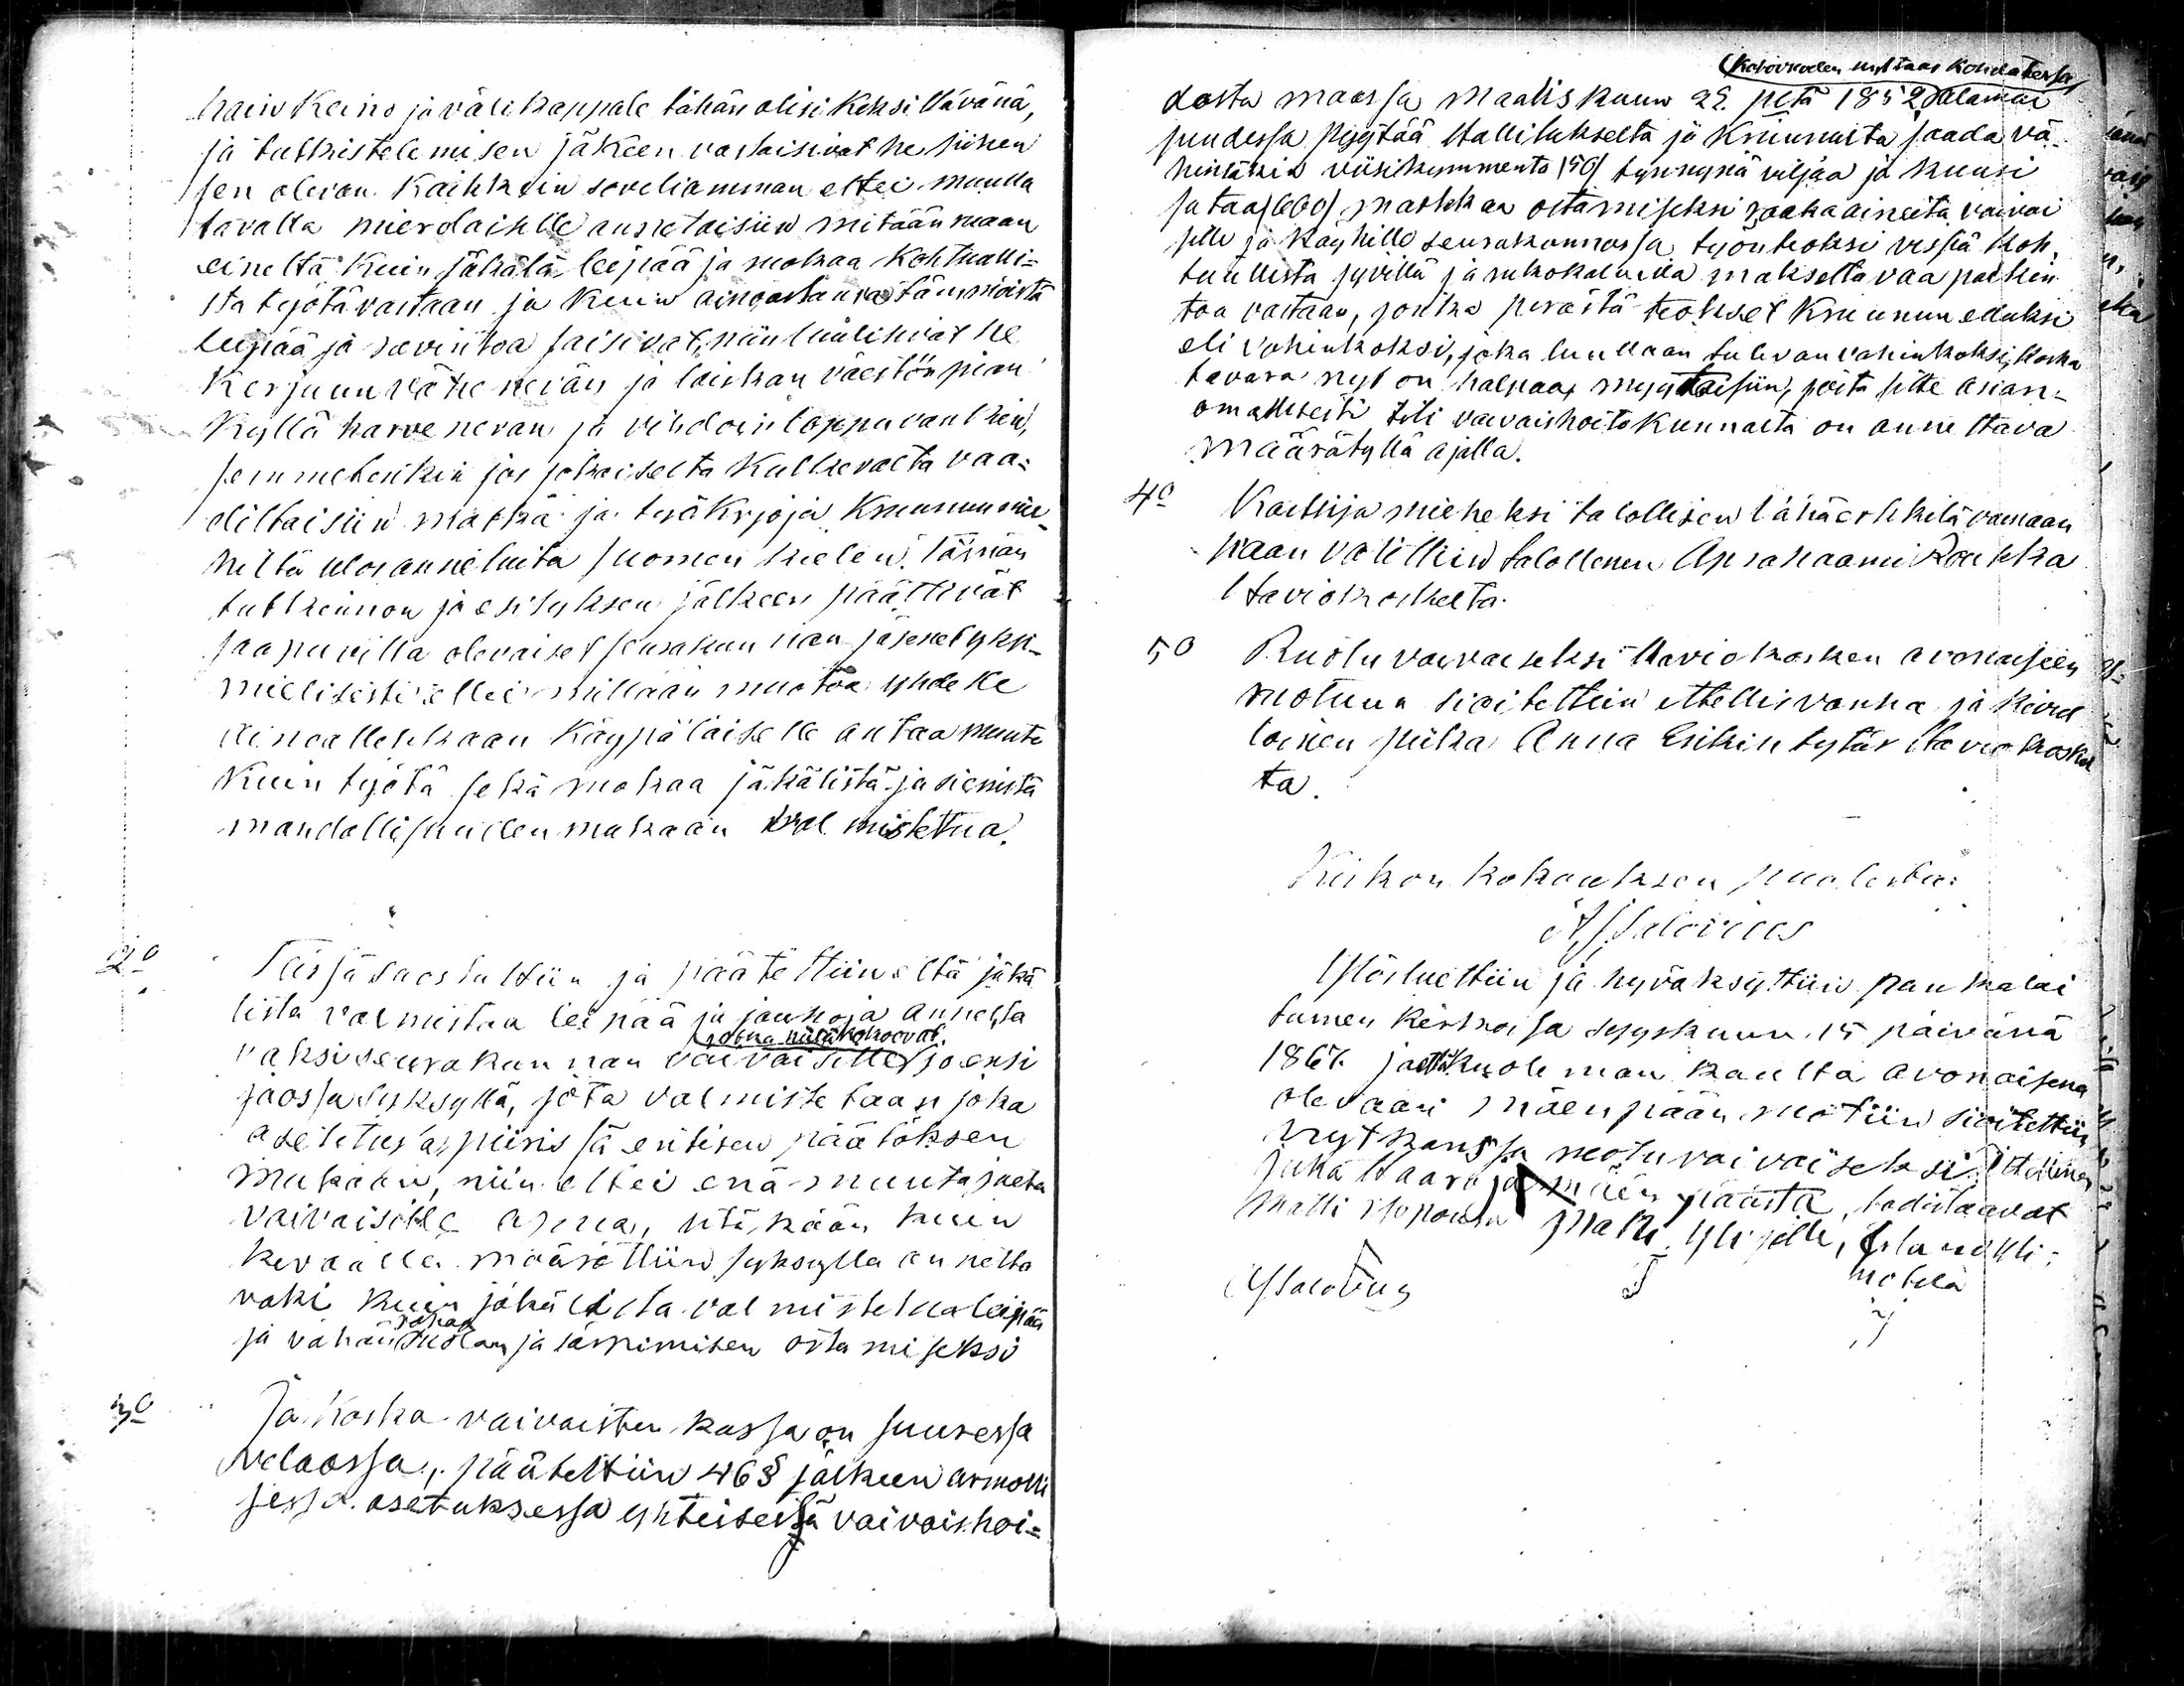 hain keino ja välikappale tähän olisi keksittävänä,
ja tutkistelemisen jäkeen vastaisivat he siihen
sen olevan kaikkein soveliamman ettei muulla
tavalla mierolaisille annetaisiin mitään maan
eineltä kuin jäkälä leipää ja ruokaa kohtualli=
sta työtä vastaan ja kuin ainoastansa tämmöistä
leipää ja ravintoa saisivat, niin luulisivat he
kerjuun vähenevän ja laiskan väestön pian
kyllä harvenevan ja vihdoin loppuvankin,
semmetenkin jos jokaiselta kulkevalta vaa=
dittaisiin matka ja työkirjoja Kruununmie=
hiltä ulosannetuita suomen kielen. Tämän
tutkinnon ja esityksen jälkeen päättivät
saapuvilla olevaiset seurakunnan jäsenet yksi=
mielisesti ettei millään muotoa yhdelle
ainoallekkaan käypäläiselle antaa muuta
kuin työtä sekä ruokaa jäkälistä ja sienistä
mandollisuuden mukaan val mistettua.
2o Tässä suostuttiin ja päätettiin että jäkä
listä valmistaa leipää ja jauhoja annetta
jotka nälkä kokoevat.
vaksi seurakunnan vaivaisille jo ensi
jaossa syksyllä, jota valmistetaan joka
asetetusa piirissä entisen päätöksen
mukaan, niin ettei enä muuta jaeta
vaivaisille apua, sitäkään kuin
kevaalla määrättiin syksylla annetta
vaksi kuin jäkälistä valmistettua leipää
rahaa
ja vähän suolan ja särpimisen ostamiseksi
3o Ja koska vaivaisten kassa on suuressa
velaossa, päätettiin 46 § jälkeen armolli
sessa asetuksessa yhteisestä vaivaishoi=
Kokovuoden uyttaar kondatessa
dosta maassa Maaliskuun 22. p:tä 1852 alamai
suudessa pyytää Hallitukselta ja Kruunulta saada vä=
hintäkin viisikymmentä /50/ tynnyriä viljaa ja kuusi
sataa /600/ markkaa ostamiseksi raaka aineita vaivai
sille ja käyhille seurakunnassa työnteoksi vissiä koh=
tuullista jyvillä ja ruokatavaralla maksettavaa palkin
toa vastaan, jonka perästä teokset Kruunun eduksi
eli vahinkoksi, joka luullaan tulevan vahinkoksi, koska
tavara nyt on halpaa, myytäisiin, jöitä sitte asian=
omattisesti tili vaivaishoitokunnalta on annettava
määrätyllä ajalla.
4o Katsija mieheksi talollisen
paan valittiin talollinen Aprahaami Raukka
Haviokoskelta.
5o Ruotu vaivaiseksi Haviokosken avonaiseen
ruotuun sioitettiin ettellisvanha ja kivul
loinen piika Anna Erikin tytär Haviokoskel
ta.
Kirkon kokouksen puolesta:
A J Salovius
Ylösluettiin ja hyväksyttiin Paukalai
tumen kirkossa syyskuun 15 päivänä
1867. ja että kuoleman kautta avonaisena
olevaan Mäenpään ruotiin sioitettiin
nyt kanssa ruotuvaivaiseksi Ittellinen
Juka Haara ja mäen päästä, todistaavat
Matti Yliselle,
AJSalovius